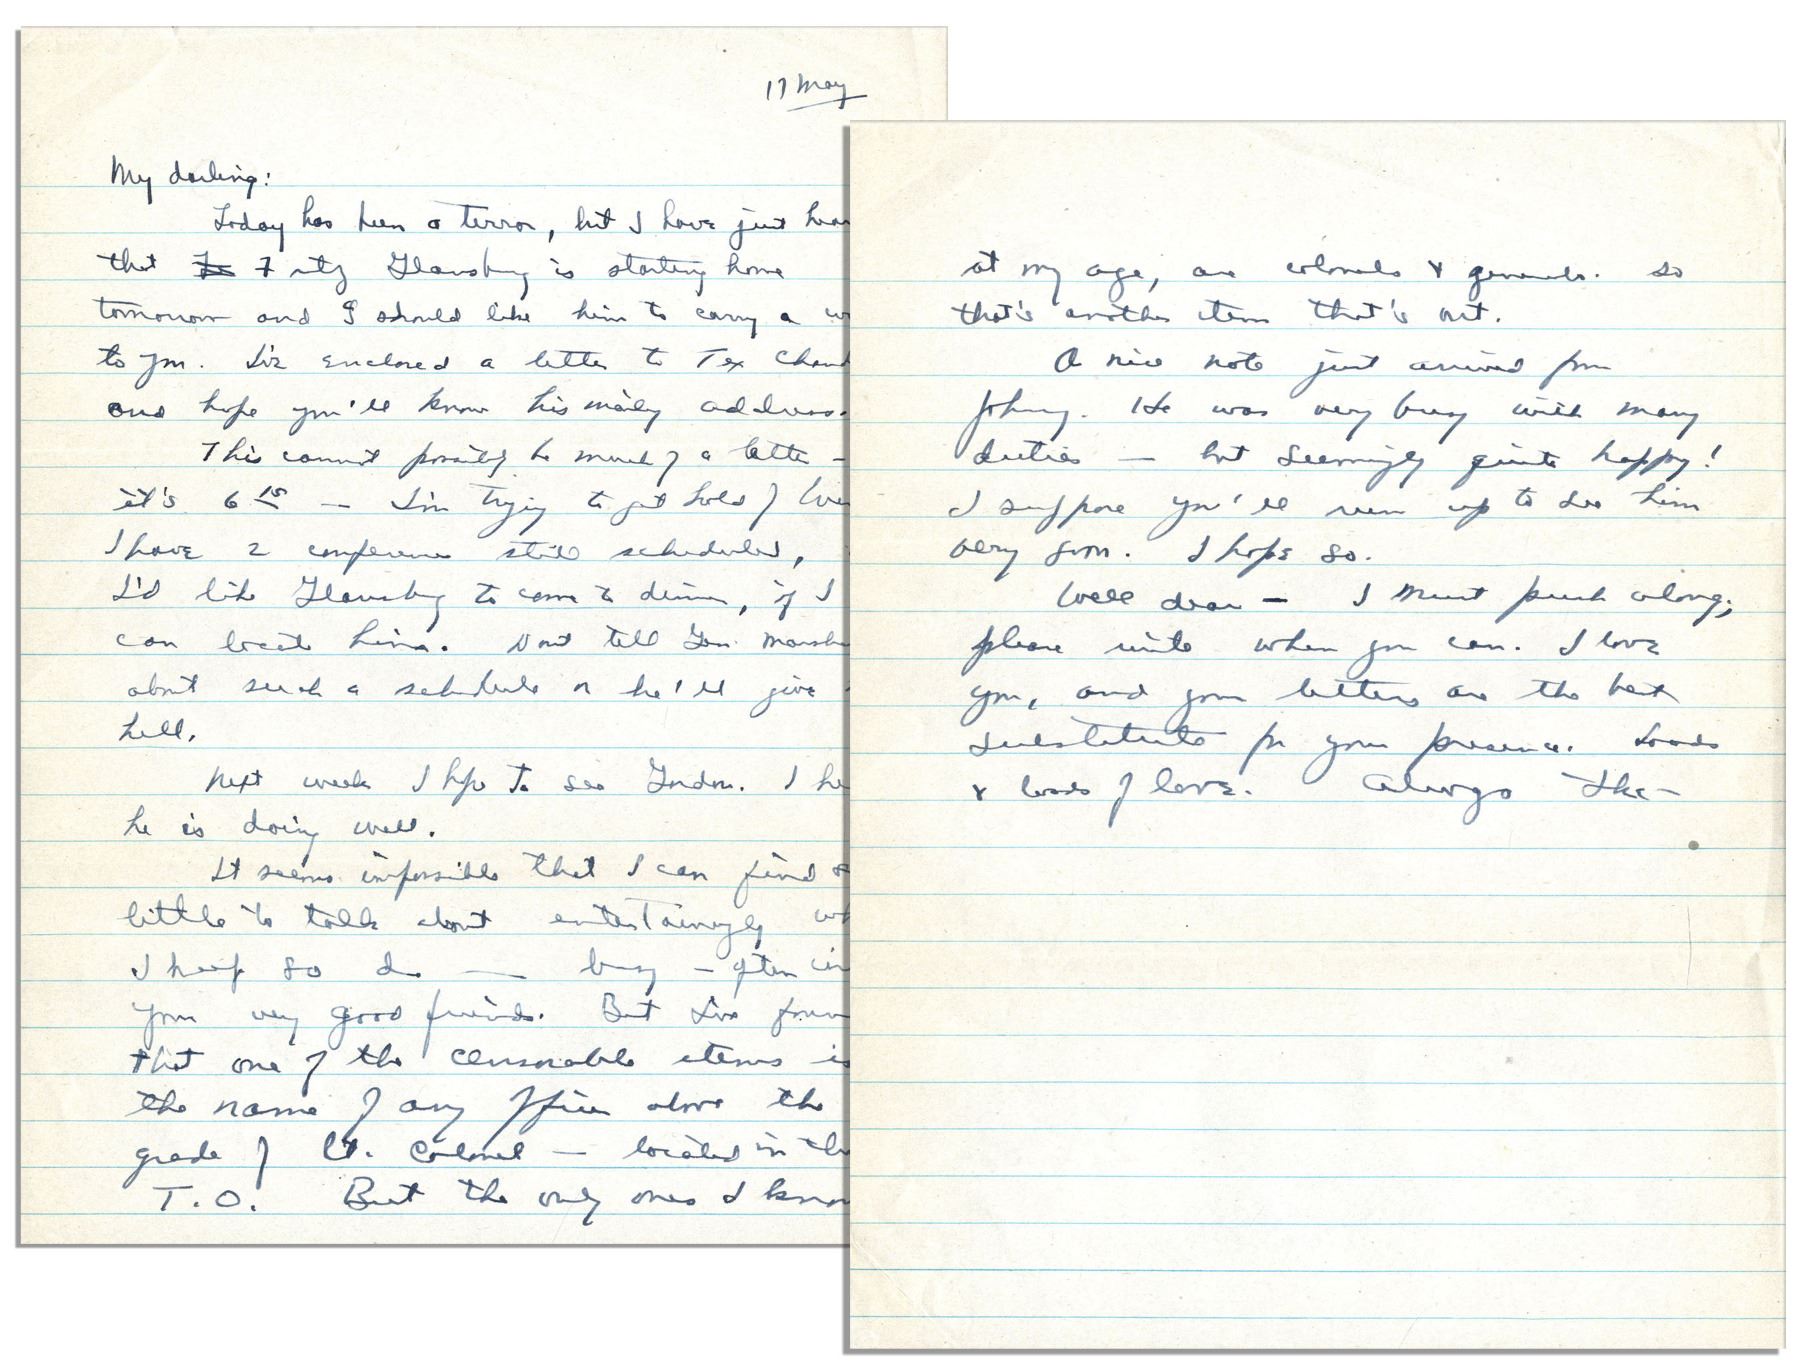 17 May
My darling:
Today has been a terror, but I have just
that Fritz Glansburg is starting home
tomorrow and I should like him to carry a
to you. I've enclosed a letter to Tex
and hope you'll know his mailing address.
This cannot possibly be much of a letter —
it's 6 15 — I'm trying to get hold of
I have 2 conferences still scheduled,
I'd like Glansburg to come to dinner, if I
can locate him. Don't tell Gen.
about such a schedule or he'll give
hell.
Next week I hope to see Gordon. I
he is doing well.
It seems impossible that I can find
little to talk about entertainingly
I keep so d— busy — often
your very good friends. But I've
that one of the censorable items is
the name of any officer above the
grade of Lt. Colonel — located in
T.O. But the only ones I
at my age, are colonels & generals. So
that's another item that's out.
A nice note just arrived from
Johnny. He was very busy with many
duties — but seemingly quite happy!
I suppose you'll run up to see him
very soon. I hope so.
Well dear — I must push along;
please write when you can. I love
you, and your letters are the best
substitute for your presence. Loads
& loads of love. Always Ike —